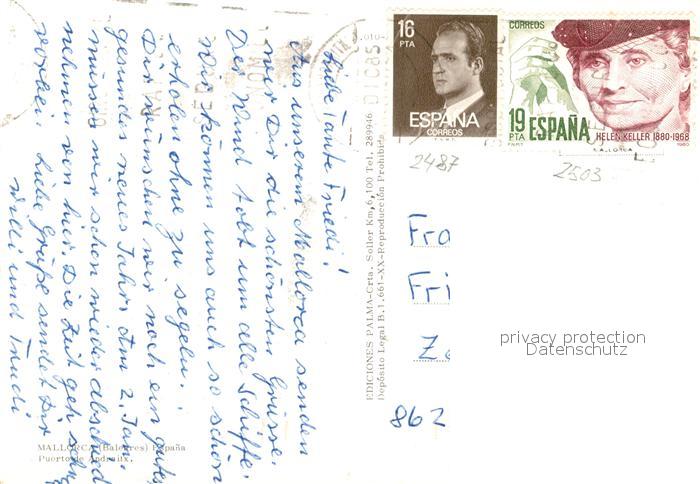 Liebe Tante Friedi!
Aus unserem Mallorca senden
wir Dir die schönsten Grüsse.
Der Wind tobt um alle Schiffe.
Wir können uns auch so schön
erholen ohne zu segeln.
Dir wünschen wir noch ein gutes,
gesundes neues Jahr. Am 2. Jan.
müssen wir schon wieder abschied
nehmen von hier. Die Zeit geht schnell
vorbei. Liebe Grüße sendet Dir
Willi und Trudi
MALLORCA (Baleares) España
Puerto de Andraitx.
EDICIONES PALMA-Crta. Soller Km, 6,100 Tel. 289946
Depósito Legal B.1.661-XX-Reproducción Prohibida
16
PTA
ESPAÑA
CORREOS
F.N.M.T.
CORREOS
19
PTA
ESPAÑA
HELEN KELLER 1880-1968
F.N.M.T.
1980
2487
2503
Fra
Fri
862
privacy protection
Datenschutz